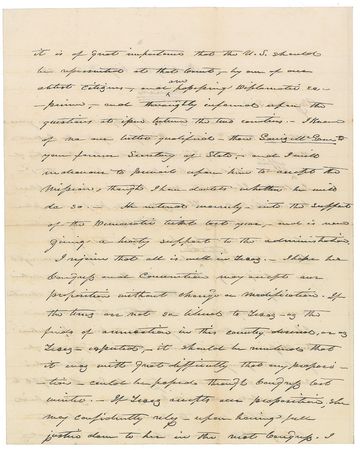 it is of great importance that the U.S. should
be represented at that Court, by one of our
ablest Citizens, and
one
possessing Diplomatic ex-
-perience, and thoroughly informed upon the
questions at issue between the two countries. I know
of no one better qualified than
your former Secretary of State, and I will
endeavour to prevail upon him to accept the
Mission, though I have doubts whether he will
do so. He entered warmly into the support
of the Democratic ticket last year, and is now
giving a hearty support to the administration
I rejoice that all is well in Texas. I hope her
Congress and Convention may accept our
proposition without change or modification. If
the terms are not so liberal to Texas as the
friends of annexation in this country desired, or as
Texas expected, it should be remembered that
it was with great difficulty that any proposi-
-tion could be passed through Congress last
winter. If Texas accepts our proposition, she
may confidently rely upon having full
justice done to her in the next Congress. I